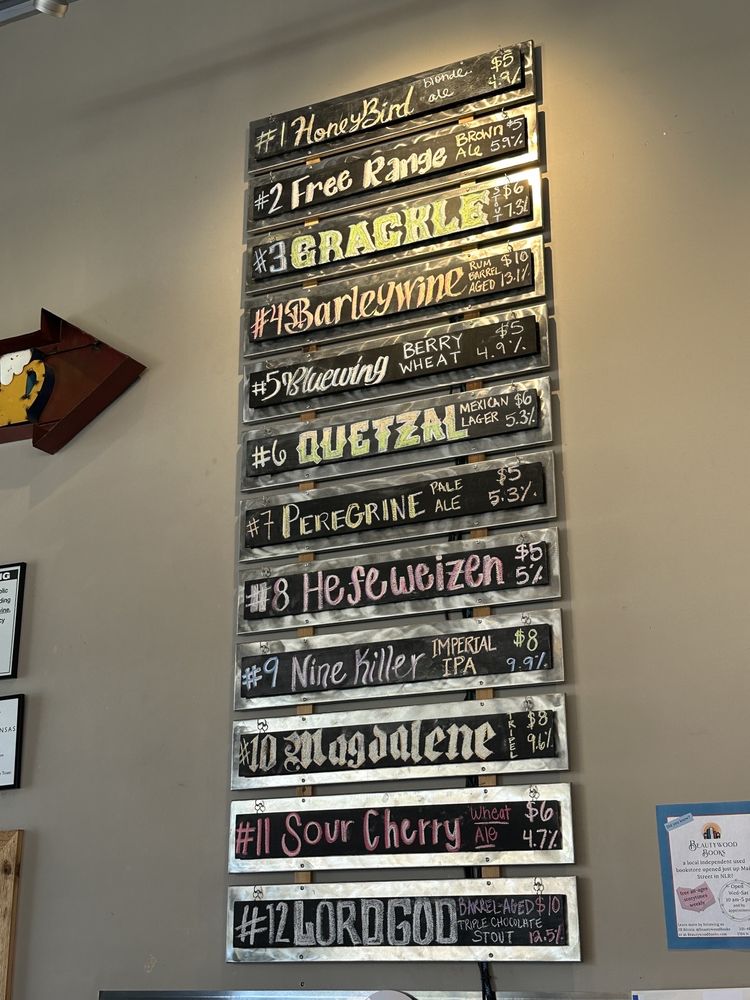 #1 HoneyBird blonde ale $5 4.9%
#2 Free Range Brown Ale $5 5.9%
#3 GRACKLE STOUT $6 7.3%
#4 Barleywine RUM BARREL AGED $10 13.1%
#5 Bluewing BERRY WHEAT $5 4.9%
#6 QUETZAL MEXICAN LAGER $6 5.3%
#7 PEREGRINE PALE ALE $5 5.3%
#8 Hefeweizen $5 5%
#9 Nine Killer IMPERIAL IPA $8 9.9%
#10 Magdalene TRIPEL $8 9.6%
#11 Sour Cherry Wheat Ale $6 4.7%
#12 LORDGOD BARREL-AGED TRIPLE CHOCOLATE STOUT $10 12.5%
BEAUTYWOOD
BOOKS
a local independent used
bookstore opened just up Mai
Street in NLR!
free all-ages
storytimes
weekly
Open
Wed-Sat
10 am-5 p
and by
appointment
Learn more by following us
NG
blic
ding
wine,
cy
NSAS
Town